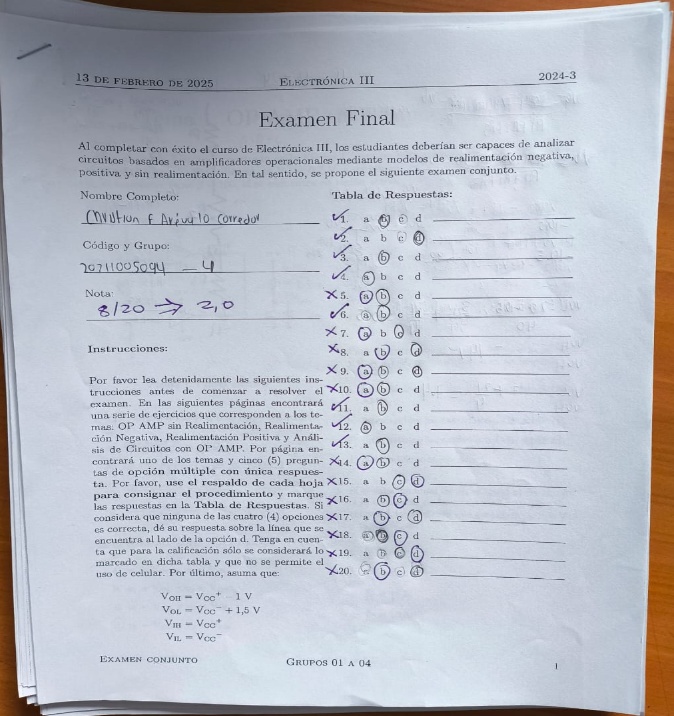 13 DE FEBRERO DE 2025 ELECTRÓNICA III 2024-3
Examen Final
Al completar con éxito el curso de Electrónica III, los estudiantes deberían ser capaces de analizar
circuitos basados en amplificadores operacionales mediante modelos de realimentación negativa,
positiva y sin realimentación. En tal sentido, se propone el siguiente examen conjunto.
Nombre Completo:
Código y Grupo:
20211005094 - 4
Nota:
8/20 → 2,0
Instrucciones:
Por favor lea detenidamente las siguientes ins-
trucciones antes de comenzar a resolver el
examen. En las siguientes páginas encontrará
una serie de ejercicios que corresponden a los te-
mas: OP AMP sin Realimentación, Realimenta-
ción Negativa, Realimentación Positiva y Análi-
sis de Circuitos con OP AMP. Por página en-
contrará uno de los temas y cinco (5) pregun-
tas de opción múltiple con única respues-
ta. Por favor, use el respaldo de cada hoja
para consignar el procedimiento y marque
las respuestas en la Tabla de Respuestas. Si
considera que ninguna de las cuatro (4) opciones
es correcta, dé su respuesta sobre la línea que se
encuentra al lado de la opción d. Tenga en cuen-
ta que para la calificación sólo se considerará lo
marcado en dicha tabla y que no se permite el
uso de celular. Por último, asuma que:
VOH = VCC+ - 1 V
VOL = VCC- + 1,5 V
VIH = VCC+
VIL = VCC-
Tabla de Respuestas:
✓1. a b c d
✓2. a b c d
✓3. a b c d
✓4. a b c d
✗5. a b c d
✓6. a b c d
✗7. a b c d
✗8. a b c d
✗9. a b c d
✗10. a b c d
✓11. a b c d
✓12. a b c d
✓13. a b c d
✗14. a b c d
✗15. a b c d
✗16. a b c d
✗17. a b c d
✗18. a b c d
✗19. a b c d
✗20. a b c d
EXAMEN CONJUNTO GRUPOS 01 A 04 1